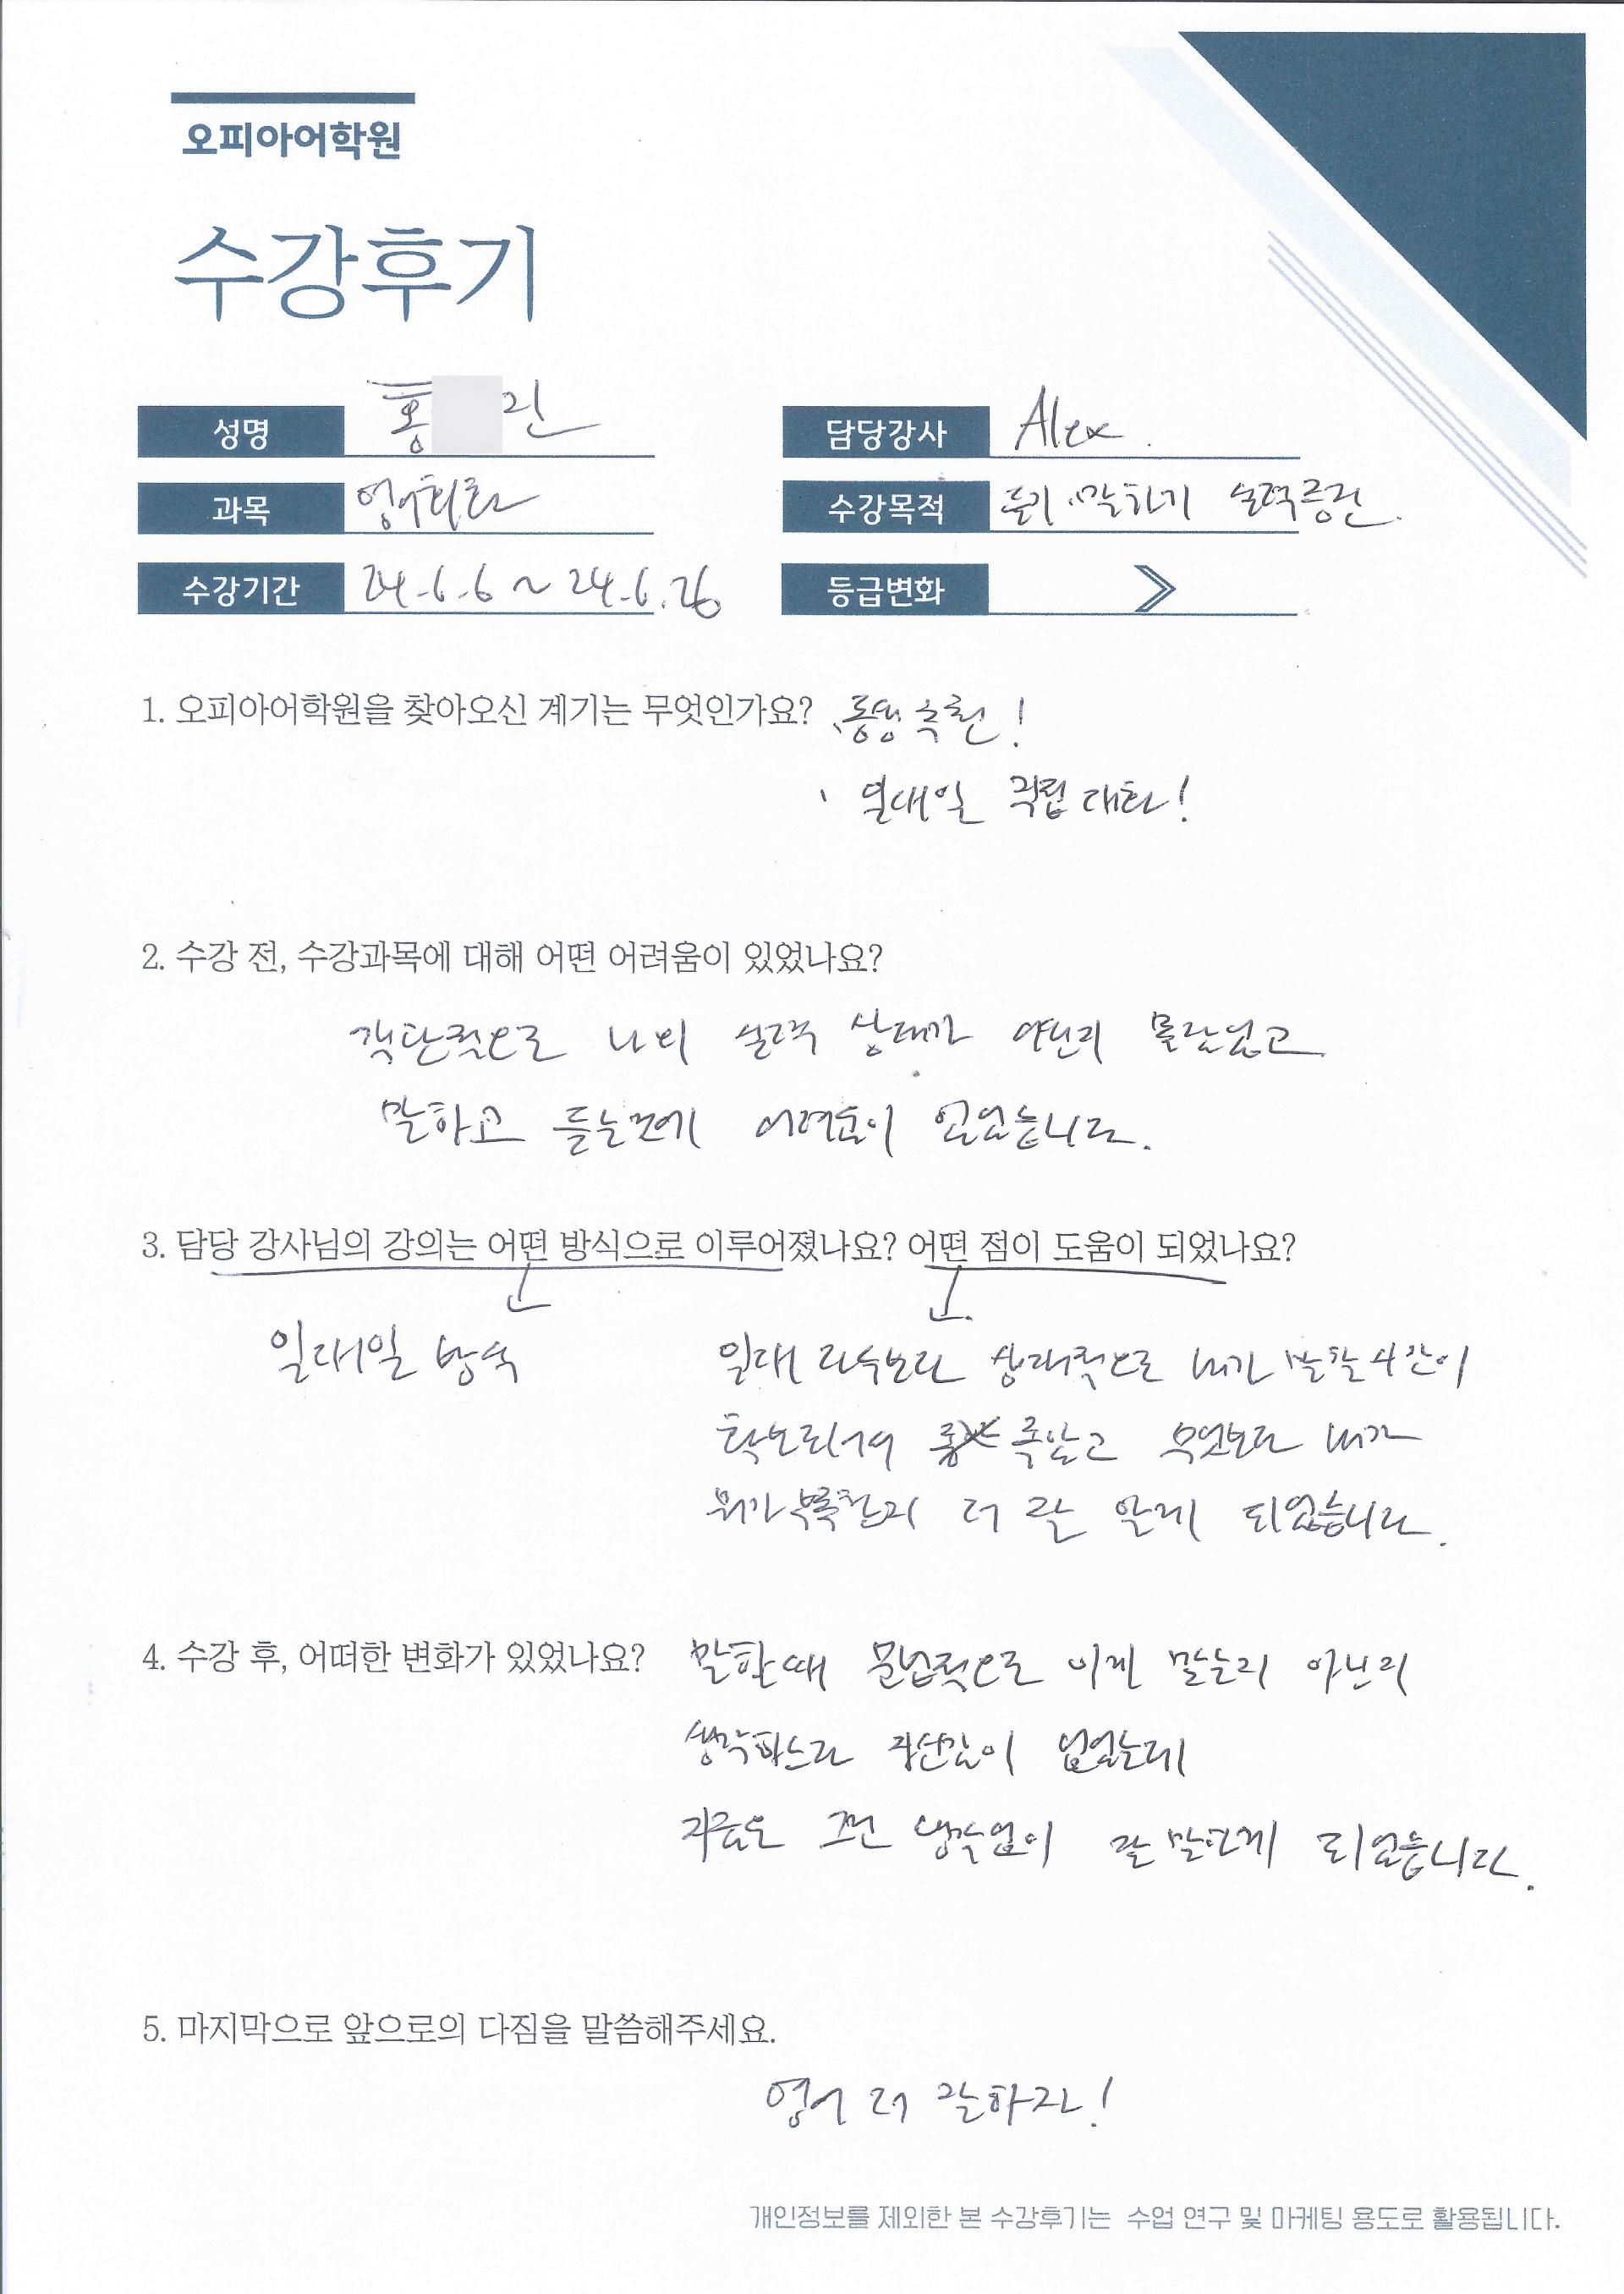 오피아어학원
수강후기
성명 홍 진 담당강사 Alex.
과목 영어회화 수강목적 듣기·말하기 실력증진.
수강기간 24.6.6 ~ 24.6.26 등급변화
1. 오피아어학원을 찾아오신 계기는 무엇인가요? 동생 추천!
일대일 직접 대화!
2. 수강 전, 수강과목에 대해 어떤 어려움이 있었나요?
객관적으로 나의 실력 상태가 어떤지 몰랐었고
말하고 듣는것에 어려움이 있었습니다.
3. 담당 강사님의 강의는 어떤 방식으로 이루어졌나요? 어떤 점이 도움이 되었나요?
일대일 방식
일대 다수보다 상대적으로 내가 말할 시간이
확보되어서 좋았고 무엇보다 내가
뭐가 부족한지 더 잘 알게 되었습니다.
4. 수강 후, 어떠한 변화가 있었나요? 말할때 문법적으로 이게 맞는지 아닌지
생각하느라 자신감이 없었는데
지금은 그런 생각없이 잘 말하게 되었습니다.
5. 마지막으로 앞으로의 다짐을 말씀해주세요.
영어 더 잘하자!
개인정보를 제외한 본 수강후기는 수업 연구 및 마케팅 용도로 활용됩니다.